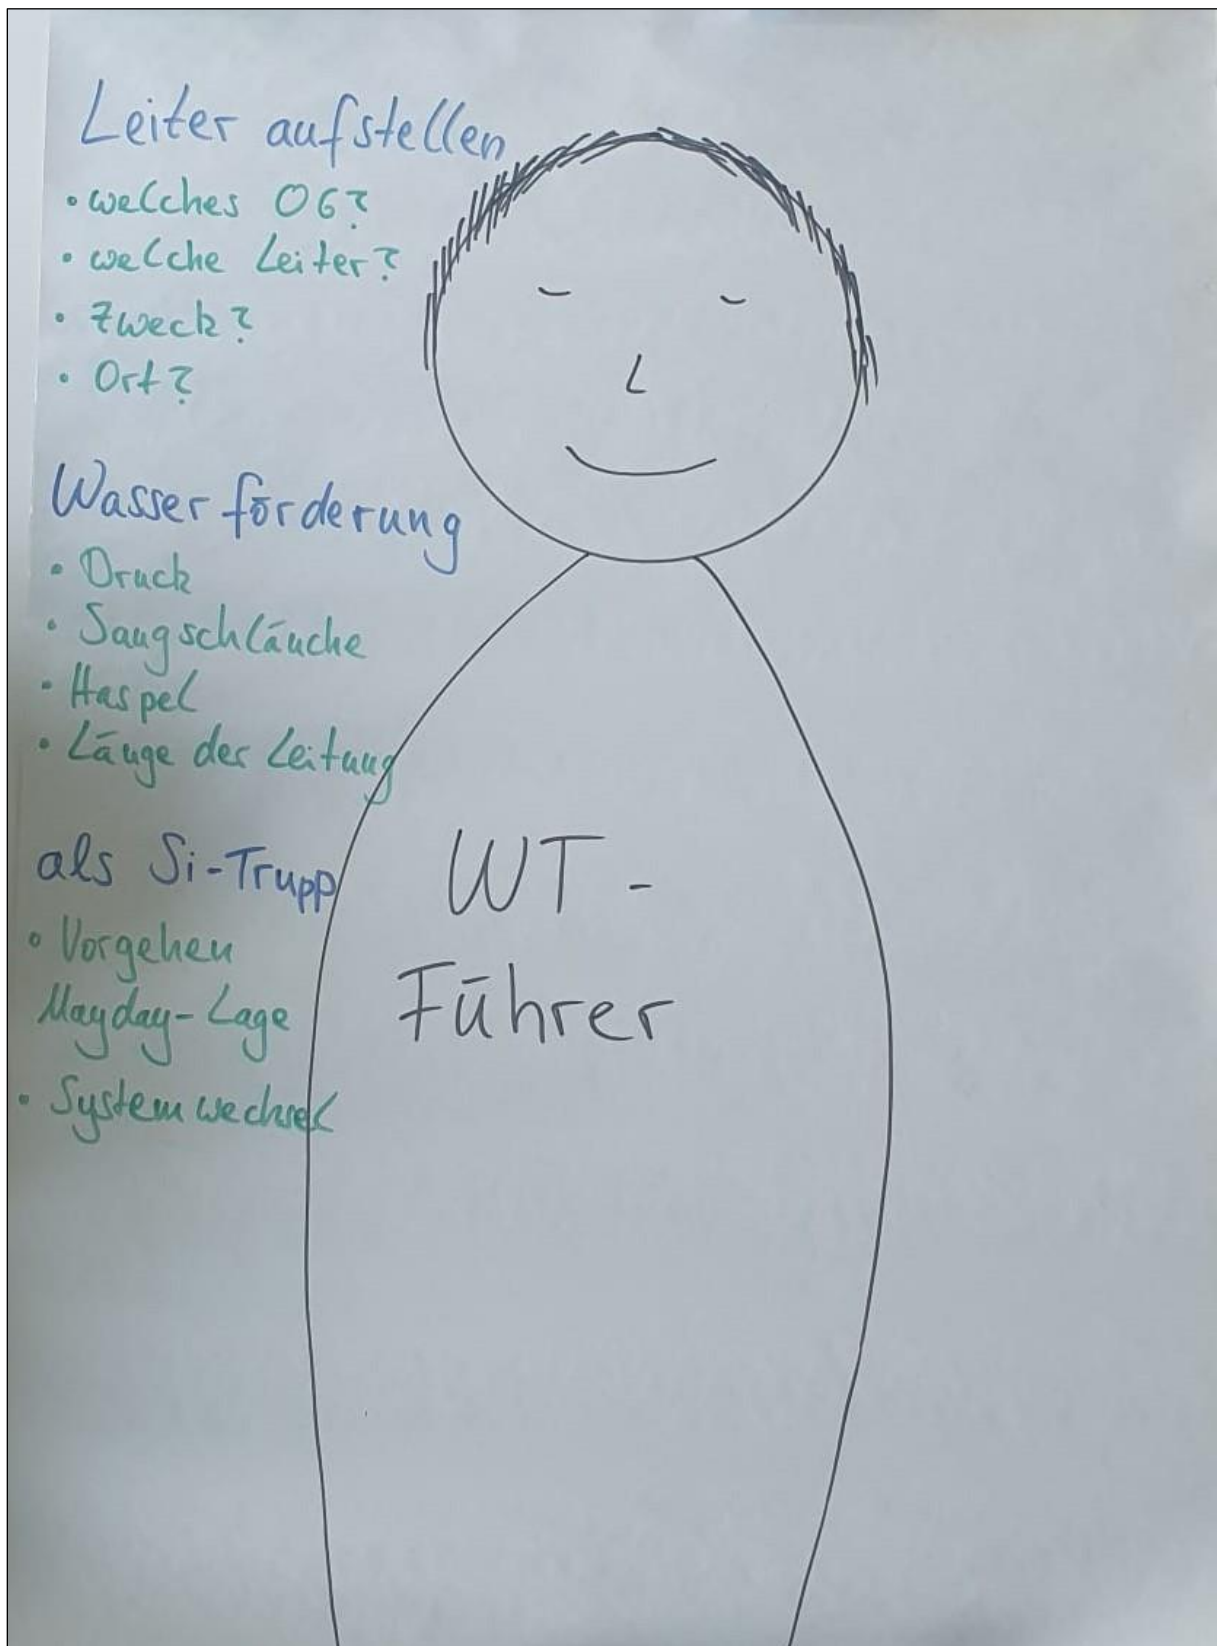 Leiter aufstellen
• welches OG?
• welche Leiter?
• Zweck?
• Ort?
Wasserförderung
• Druck
• Saugschläuche
• Haspel
• Länge der Leitung
als Si-Trupp
• Vorgehen
Mayday-Lage
• Systemwechsel
WT-
Führer